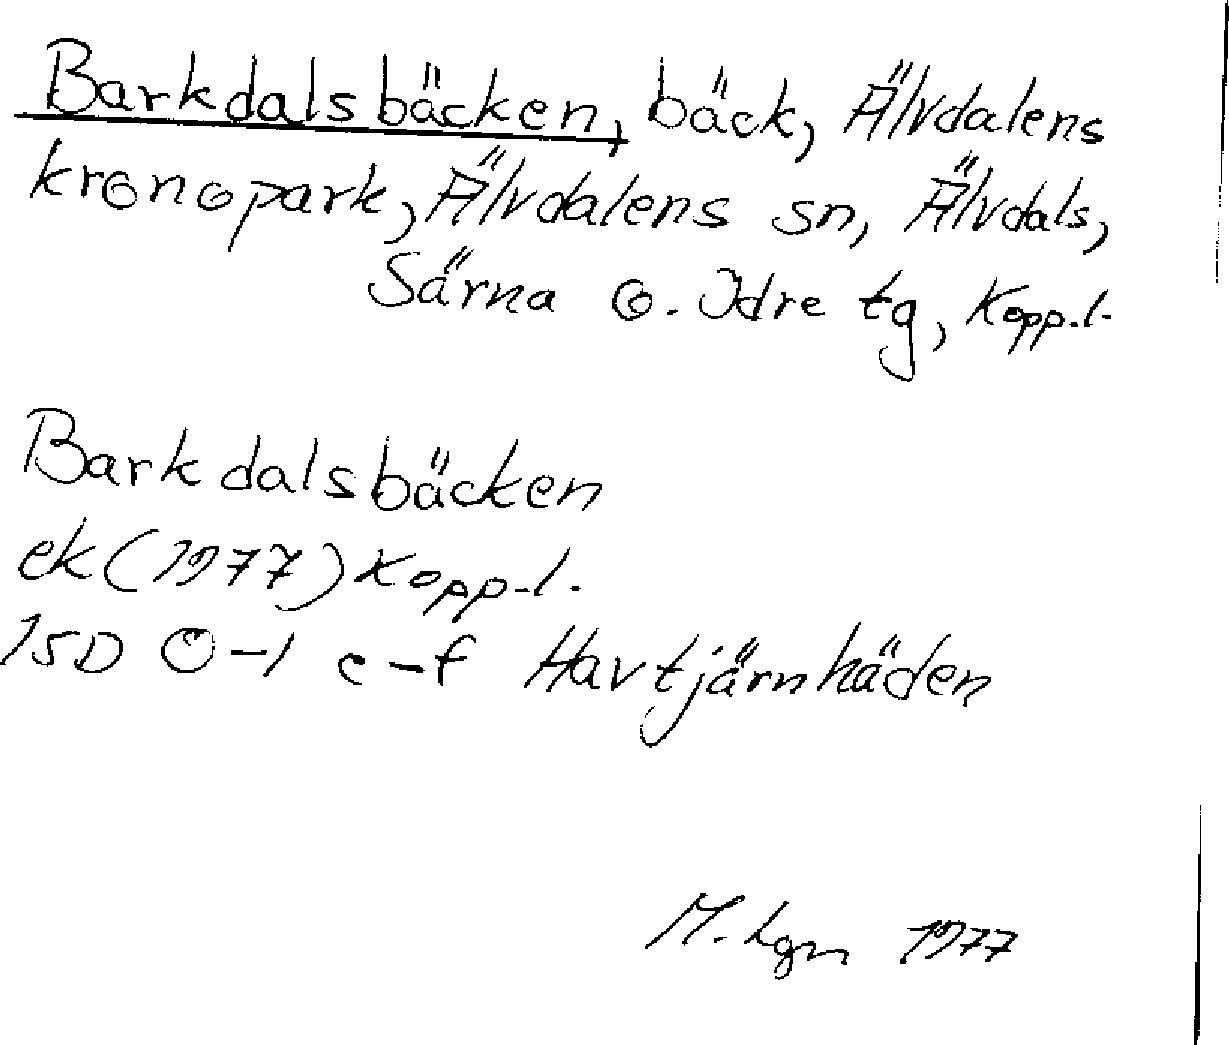 Barkdalsbäcken, bäck, Älvdalens
kronopark, Älvdalens sn, Älvdals,
Särna o. Idre tg, Kopp.l.
Barkdalsbäcken
ek (1977) Kopp.l.
15D 0-1 e-f Havtjärnhäden
M. Lgn 1977